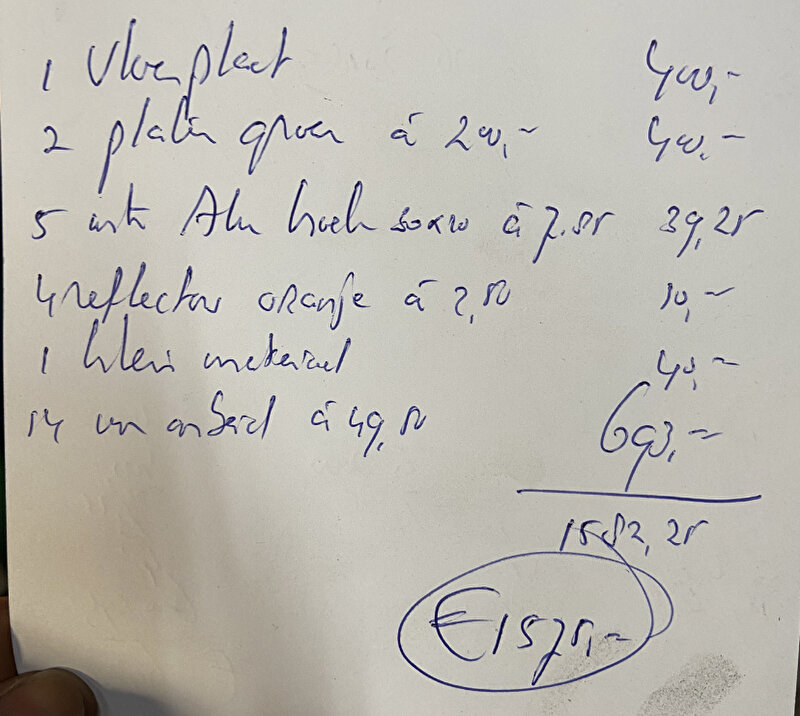 1 Vloerplaat 400,-
2 platen groen á 200,- 400,-
5 mtr Alu hoek 30x20 á 7.85 39,25
4 reflector oranje á 2,50 10,-
1 klein materiaal 40,-
14 uur arbeid á 49,50 693,-
1582,25
€1575,-